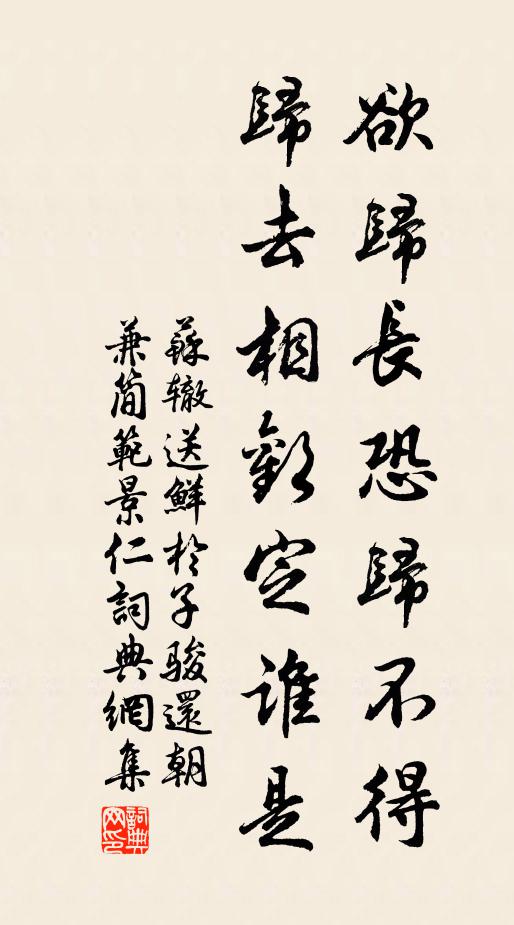 欲歸長恐歸不得
歸去相歡定誰是
蘇辙送鮮於子骏還朝
兼简範景仁詞典網集
詞典網印